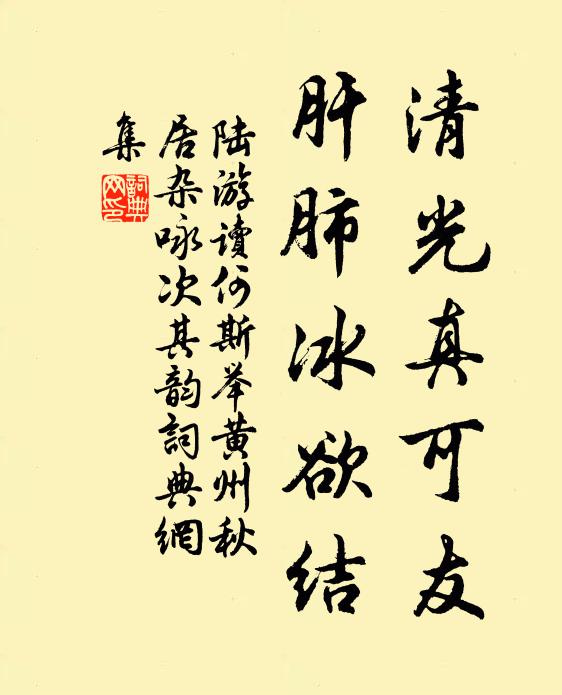 清光真可友
肝肺冰欲结
陆游读何斯举黄州秋
居杂咏次其韵詞典網
集
詞典
网印